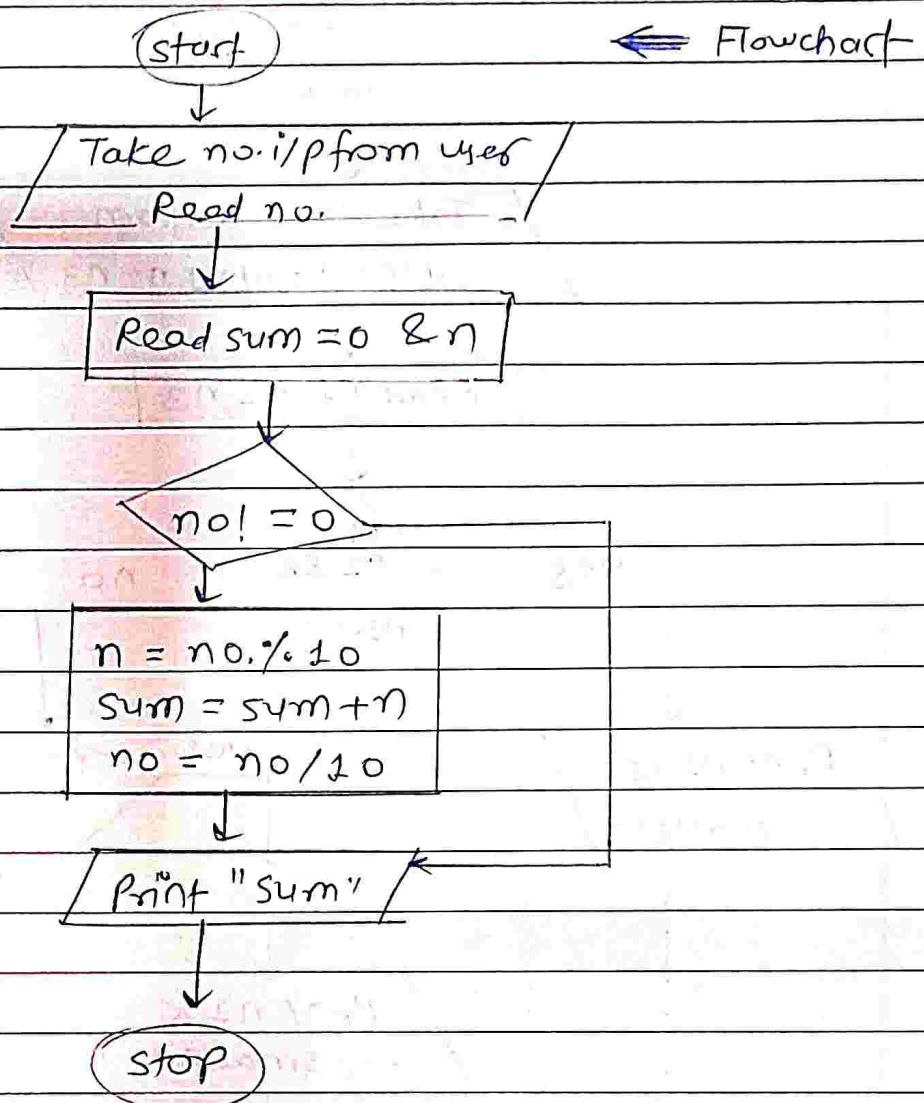 start
⇐ Flowchart
Take no. i/p from user
Read no.
Read sum = 0 & n
no! = 0
n = no. % 10
sum = sum + n
no = no / 10
Print "Sum"
stop